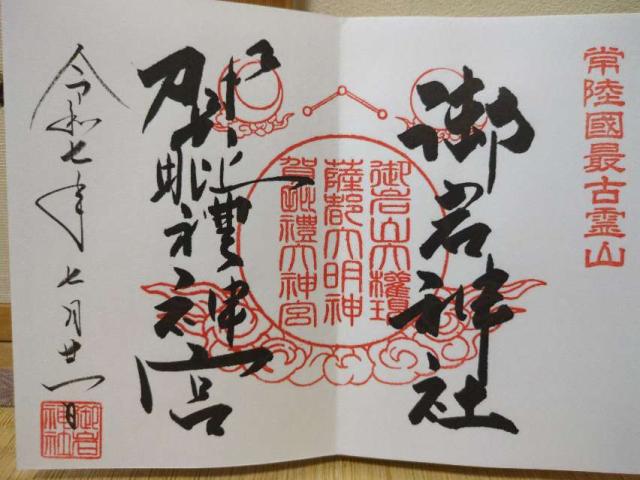 常陸國最古霊山
御岩神社
御岩山大権現
薩都大明神
賀毗禮大神宮
賀毗禮神宮
令和七年七月廿一日
御岩
神社